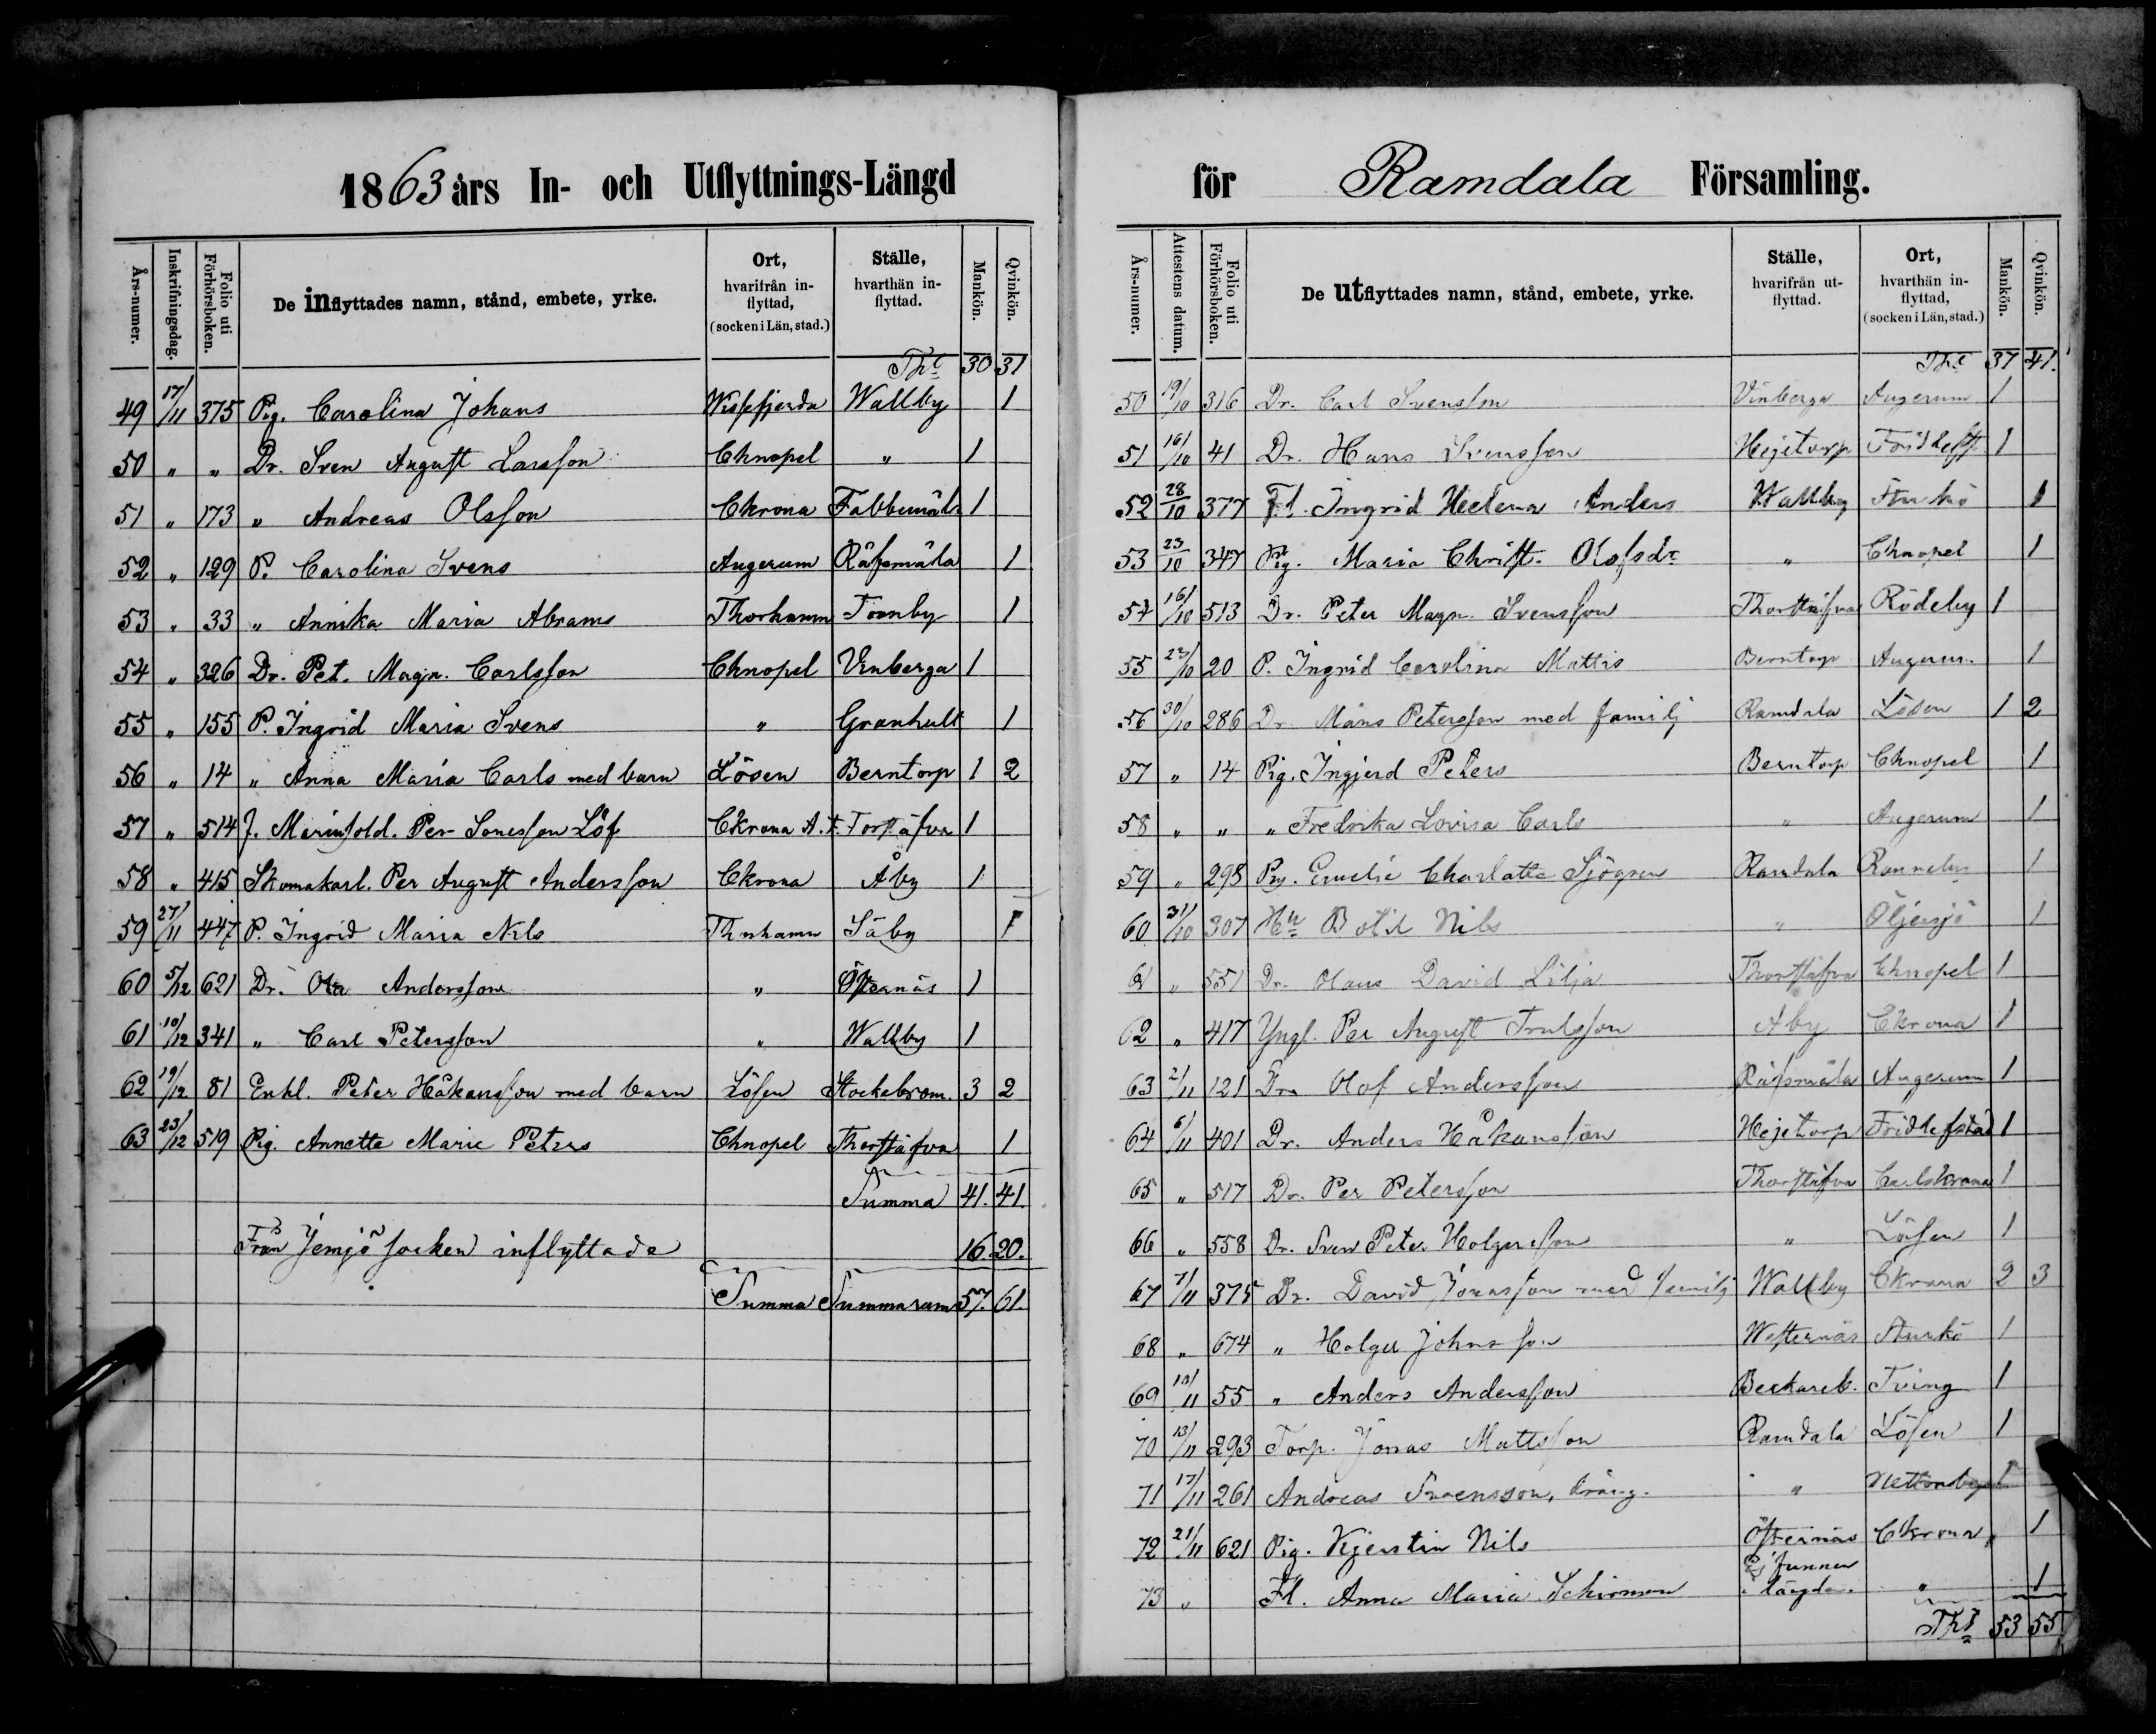 1863 års In- och Utflyttnings-Längd
Års-numer. Inskrifningsdag. Folio uti Förhörsboken. De inflyttades namn, stånd, embete, yrke. Ort, hvarifrån in-flyttad, (socken i Län, stad.) Ställe, hvarthän in-flyttad. Mankön. Qvinkön.
30 31
49 17/11 375 Pig. Carolina Johans Wissefjerda Wallby 1
50 " " Dr. Sven August Larsson Chnopel " 1
51 " 173 " Andreas Olsson Ckrona Fabbemåla 1
52 " 129 P. Carolina Svens Augerum Räfsmåla 1
53 " 33 " Annika Maria Abrams Thorhamn Tornby 1
54 " 326 Dr. Pet. Magn. Carlsson Chnopel Vinberga 1
55 " 155 P. Ingrid Maria Svens " Granhult 1
56 " 14 " Anna Maria Carls med barn Lösen Berntorp 1 2
57 " 514 Per Jonesson Löf Ckrona A.f. Torstäfva 1
58 " 415 Skomakarl. Per August Andersson Ckrona Åby 1
59 27/11 447 P. Ingrid Maria Nils Thrhamn Säby 1
60 5/12 621 Dr. Ola Andersson " Östernäs 1
61 10/12 341 " Carl Petersson " Wallby 1
62 19/12 81 Enkl. Peter Håkansson med barn Lösen Stockebrom. 3 2
63 23/12 519 Pig. Annette Marie Peters Chnopel Thorstäfva 1
Summa 41. 41.
Från Jemjö socken inflyttade 16. 20.
Summa Summarum 57. 61.
för Ramdala Församling.
Års-numer. Attestens datum. Folio uti Förhörsboken. De utflyttades namn, stånd, embete, yrke. Ställe, hvarifrån ut-flyttad. Ort, hvarthän in-flyttad, (socken i Län, stad.) Mankön. Qvinkön.
37 41.
50 19/10 316 Dr. Carl Svensson Vinberga Augerum 1
51 16/10 41 Dr. Hans Svensson Hejetorp Fridlefst 1
52 28/10 377 Fl. Ingrid Helena Anders Wallby Sturkö 1
53 23/10 347 Pig. Maria Christ. Olofsdr " Chnopel 1
54 16/10 513 Dr. Peter Magn. Svensson Thorstäfva Rödeby 1
55 22/10 20 P. Ingrid Carolina Mattis Berntorp Augerum. 1
56 30/10 286 Dr. Måns Petersson med familj Ramdala Lösen 1 2
57 " 14 Pig. Ingjerd Peters Berntorp Chnopel 1
58 " " " Fredrika Lovisa Carls " Augerum 1
59 " 298 Pig. Emelie Charlotta Sjögren Ramdala Ronneby 1
60 31/10 307 Hu Botil Nils " Öljersjö 1
61 " 551 Dr. Olaus David Lilja Thorstäfva Chnopel 1
62 " 417 Yngl. Per August Trulsson Åby Ckrona 1
63 2/11 121 Dr. Olof Andersson Räfsmåla Augerum 1
64 6/11 401 Dr. Anders Håkansson Hejetorp Fridlefstad 1
65 " 517 Dr. Per Petersson Thorstäfva Carlskrona 1
66 " 558 Dr. Sven Peter Holgersson " Lösen 1
67 7/11 375 Dr. David Jonasson med familj Wallby Ckrona 2 3
68 " 674 " Holger Johnsson Westernäs Sturkö 1
69 10/11 55 " Anders Andersson Beckareb. Tving 1
70 13/11 293 Torp. Jonas Mattsson Ramdala Lösen 1
71 17/11 261 Andreas Svensson, dräng. " 1
72 21/11 621 Pig. Kjerstin Nils Östernäs Ckrona 1
73 " Fl. Anna Maria Schirman Ej funnen i längden. " 1
53 55